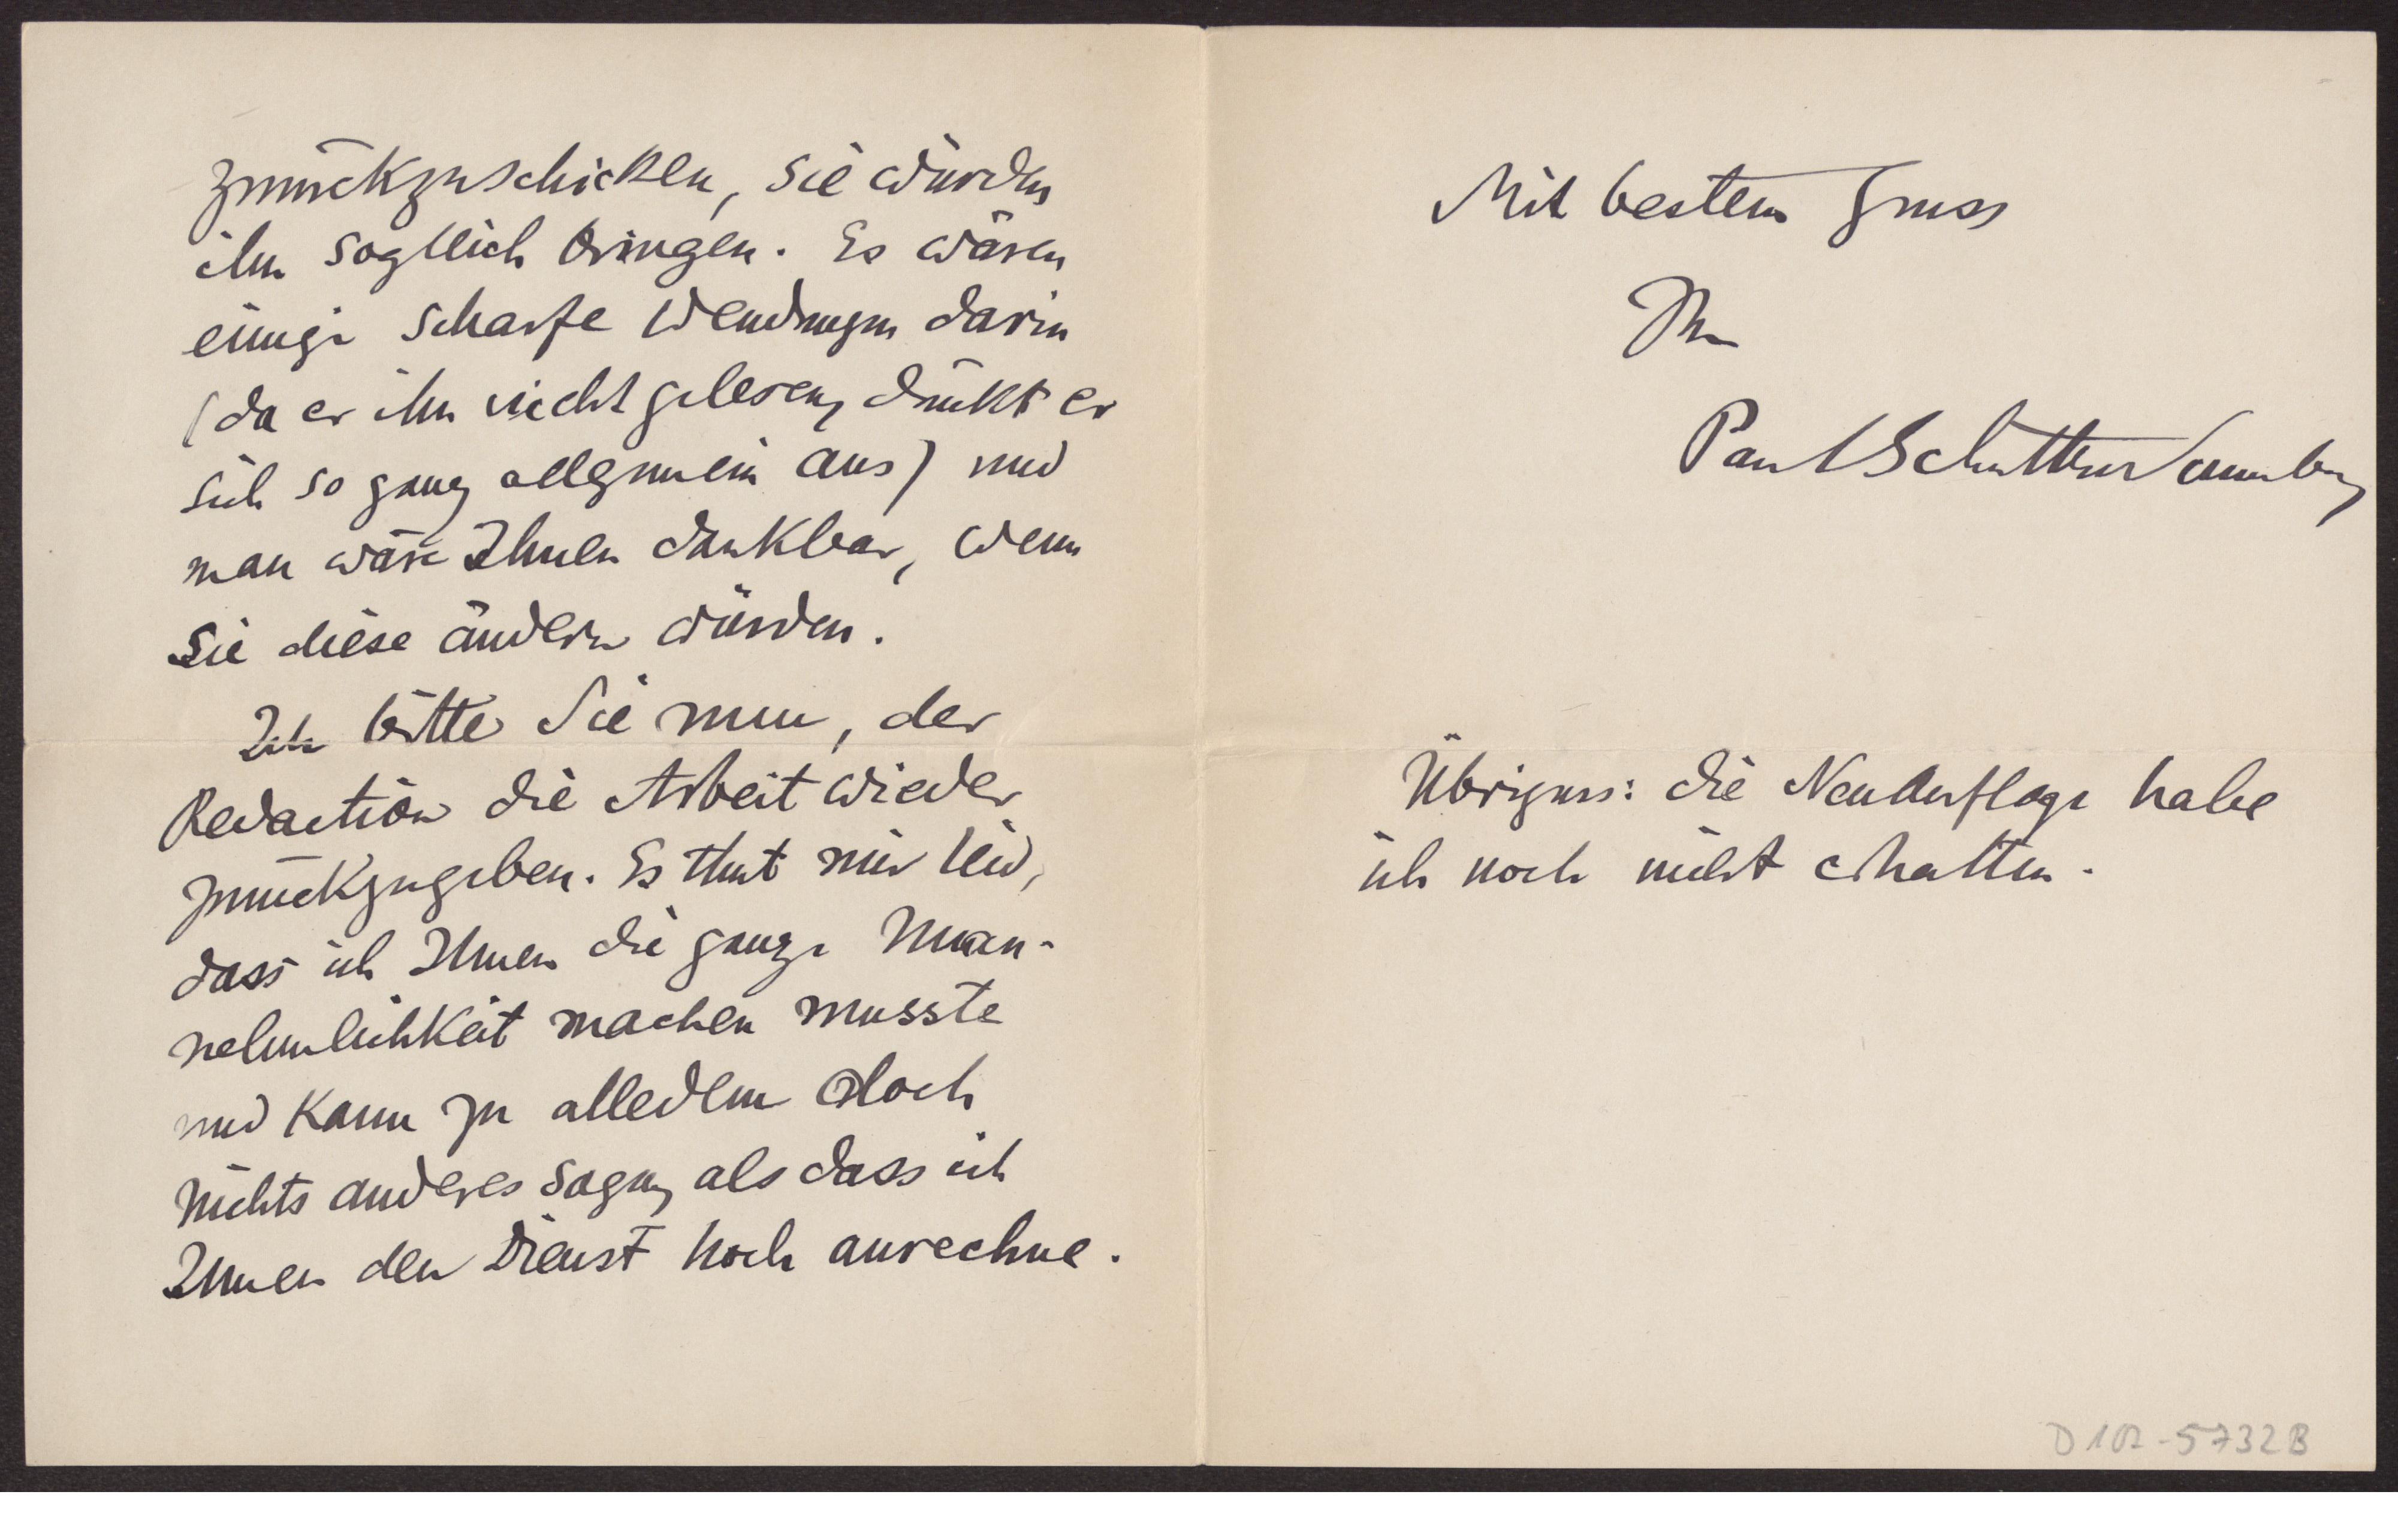 zurückzuschicken, sie würden
ihn sogleich bringen. Es wären
einige scharfe Wendungen darin
(da er ihn nicht gelesen, drückt er
sich so ganz allgemein aus) und
man wäre Ihnen dankbar, wenn
Sie diese ändern würden.
Ich bitte Sie nun, der
Redaction die Arbeit wieder
zurückzugeben. Es thut mir leid,
dass ich Ihnen die ganze Unan-
nehmlichkeit machen musste
und kann zu alledem doch
nichts anderes sagen, als dass ich
Ihnen den Dienst hoch anrechne.
Mit bestem Gruss
Ihr
Paul Schultze Naumburg
Übrigens: die Neuauflage habe
ich noch nicht erhalten.
D 102-5732B